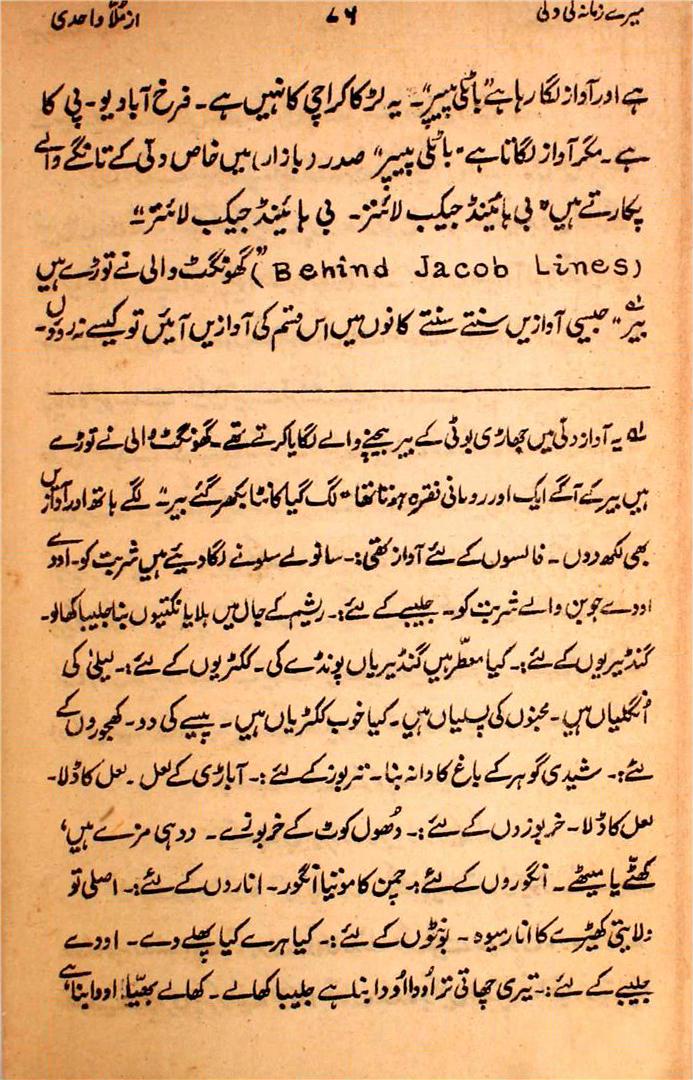 میرے زمانہ کی دلی ۷۶ از ملّا واحدی
ہے اور آواز لگا رہا ہے "باٹلی پیپر"۔ یہ لڑکا کراچی کا نہیں ہے۔ فرخ آباد یو۔ پی کا
ہے۔ مگر آواز لگاتا ہے "باٹلی پیپر" صدر (بازار) میں خاص دلّی کے تانگے والے
پکارتے ہیں "بی ہائینڈ جیکب لائنز۔ بی ہائینڈ جیکب لائنز"
(Behind Jacob Lines) "گھونگٹ والی نے توڑے ہیں
بیر"ؔ جیسی آوازیں سنتے سنتے کانوں میں اس قسم کی آوازیں آئیں تو کیسے نہ روؤں۔
لہ یہ آواز دلّی میں جھاڑی بوٹی کے بیر بیچنے والے لگایا کرتے تھے۔ گھونگٹ والی نے توڑے
ہیں بیر کے آگے ایک اور رومانی فقرہ ہوتا تھا "لگ گیا کانٹا بکھر گئے بیر"۔ لگے ہاتھ اور آوازیں
بھی لکھ دوں۔ فالسوں کے لئے آواز تھی:۔ سانولے سلونے لگا دیئے ہیں شربت کو۔ اودے
اودے جوبن والے شربت کو۔ جلیبے کے لئے:۔ ریشم کے جال میں ہلایا نکتیوں بنا جلیبا کھا لو۔
گنڈیریوں کے لئے:۔ کیا معطّر ہیں گنڈیریاں پونڈے کی۔ ککڑیوں کے لئے:۔ لیلیٰ کی
اُنگلیاں ہیں۔ مجنوں کی پسلیاں ہیں۔ کیا خوب ککڑیاں ہیں۔ پیسے کی دو۔ کھجوروں کے
لئے:۔ شیدی گوہر کے باغ کا دانہ بنا۔ تربوز کے لئے:۔ آباڑی کے لعل۔ لعل کا ڈلا۔
لعل کا ڈلا۔ خربوزوں کے لئے:۔ دُھول کوٹ کے خربوزے۔ دو ہی مزے ہیں،
کھٹّے یا میٹھے۔ انگوروں کے لئے:۔ چمن کا موتیا انگور۔ اناروں کے لئے:۔ اصلی تو
ولایتی کھیڑے کا انار میوہ۔ بُونٹوں کے لئے:۔ کیا ہرے کیا پھلے وے۔ اودے
جلیبے کے لئے:۔ تیری چھاتی تر اُودا اُودا بنا ہے جلیبا کھالے۔ کھالے بھیّا! اودا بنا ہے،